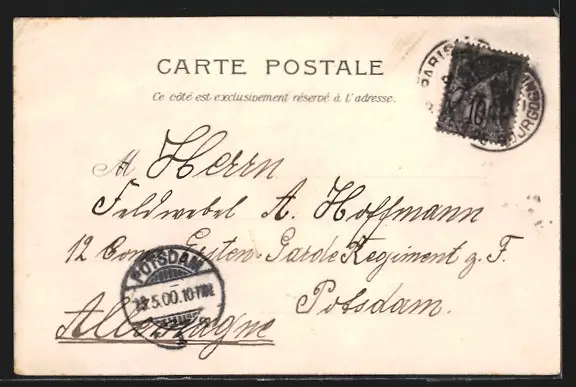 CARTE POSTALE
Ce côté est exclusivement réservé à l'adresse.
PARIS
10
BOURGOGNE
M Herrn
Feldwebel A. Hoffmann
12 Comp. Garde Regiment z. F.
Potsdam.
Allemagne
POTSDAM
5.00.10-11